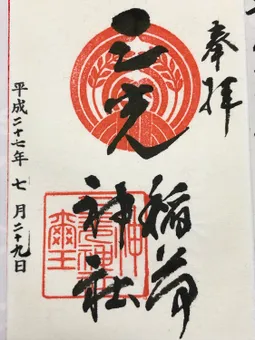 奉拝
三光
稲荷
神社
平成二十七年 七月二十九日